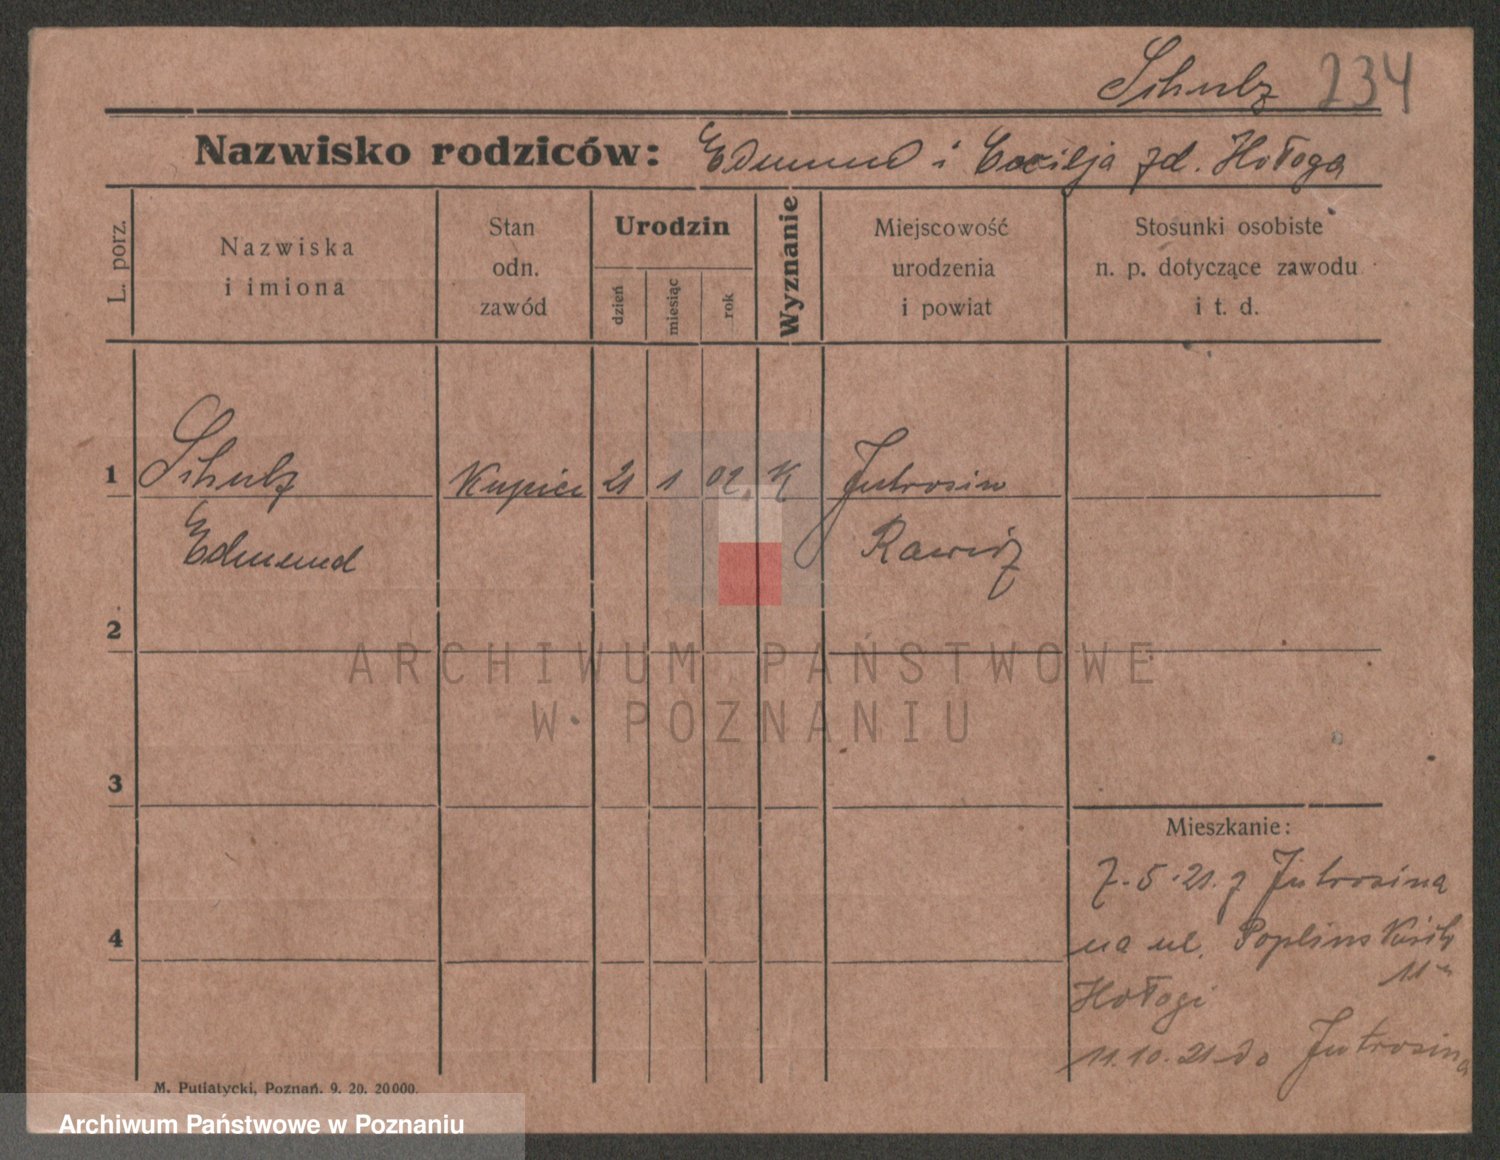 Schulz 234
Nazwisko rodziców: Edmund i Cecilja zd. Hołoga
L. porz.
Nazwiska
i imiona
Stan
odn.
zawód
Urodzin
dzień
miesiąc
rok
Wyznanie
Miejscowość
urodzenia
i powiat
Stosunki osobiste
n. p. dotyczące zawodu
i t. d.
1 Schulz Kupiec 21 1 02 K Jutrosin
Edmund Rawicz
2
3
4
Mieszkanie:
7.5.21. z Jutrosina
na ul. Poplińskich
11
Hołogi
11.10.21 do Jutrosina
M. Putiatycki, Poznań. 9. 20. 20000.
ARCHIWUM PAŃSTWOWE
W POZNANIU
Archiwum Państwowe w Poznaniu